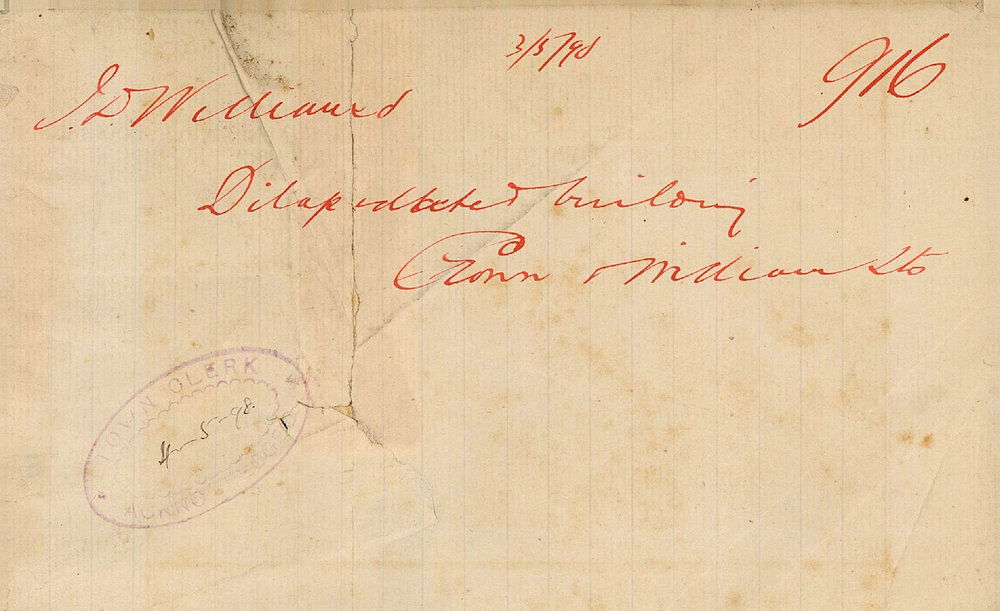 3/5/98
916
J. D. Williams
Dilapidated building
Conn & William Sts
TOWN CLERK
4-5-98.
ACKNOWLEDGED